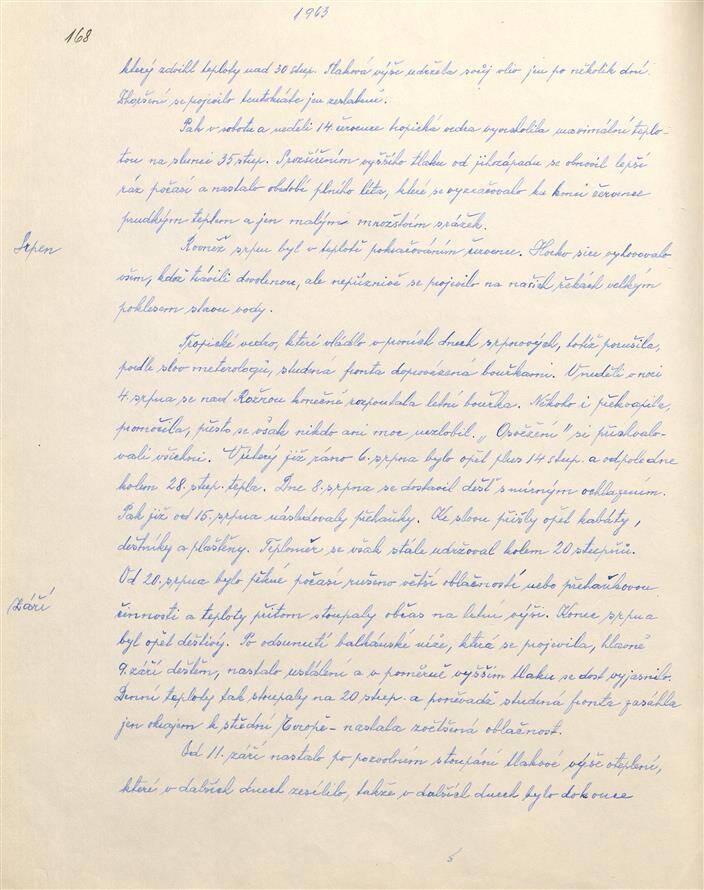 1963
168
který zdvihl teploty nad 30 stup. Tlaková výše udržela svůj vliv jen po několik dní.
Zhoršení se projevilo tentokráte jen
Pak v sobotu a neděli 14. července tropická vedra vyvrcholila maximální teplo-
tou na slunci 35 stup. Prozšířením vyššího tlaku od jihozápadu se obnovil lepší
ráz počasí a nastalo období plného léta, které se vyznačovalo ke konci července
prudkým teplem a jen malým množstvím srážek.
Srpen
Rovněž srpen byl v teplotě pokračováním července. Horko sice vyhovovalo
všem, kdož trávili dovolenou, ale nepříznivě se projevilo na našich řekách velkým
poklesem stavu vody.
Tropické vedro, které vládlo v prvních dnech srpnových, totiž porušila,
podle slov meterologů, studená fonta doprovázená bouřkami. V neděli v noci
4. srpna se nad konečně rozpoutala letní bouřka. Někoho i překvapila,
promočila, přesto se však nikdo ani moc nezlobil. „Osvěžení" si pochvalo-
vali všichni. V úterý již ráno 6. srpna bylo opět plus 14 stup. a odpoledne
kolem 28. stup. tepla. Dne 8. srpna se dostavil déšť s mírným ochlazením.
Pak již od 15. srpna následovaly přeháňky. Ke slovu přišly opět kabáty,
deštníky a pláštěny. Teploměr se však stále udržoval kolem 20 stupňů.
Od 20. srpna bylo pěkné počasí rušeno větší oblačností nebo přeháňkovou
Září
činností a teploty přitom stoupaly občas na letní výši. Konec srpna
byl opět deštivý. Po odsunutí balkánské níže, která se projevila, hlavně
9. září deštěm, nastalo ustálení a v poměrně vyšším tlaku se dost vyjasnilo.
Denní teploty tak stoupaly na 20 stup. a poněvadž studená fronta zasáhla
jen okrajem k střední Evropě - nastala zvětšená oblačnost.
Od 11. září nastalo po pozvolném stoupání tlakové výše oteplení,
které v dalších dnech zesílilo, takže v dalších dnech bylo dokonce
5